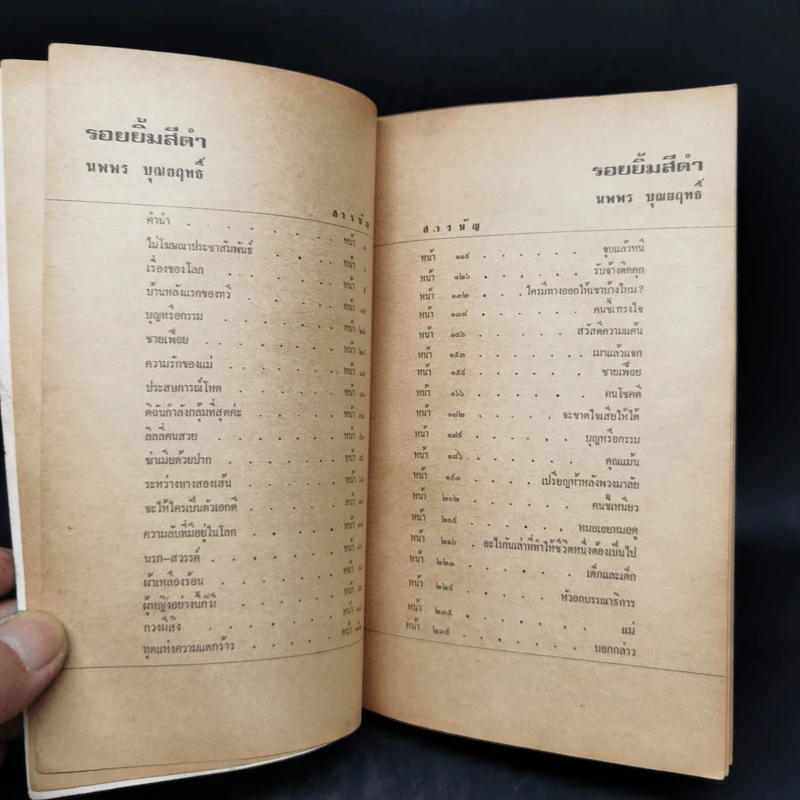 รอยยิ้มสีดำ
นพพร บุณยฤทธิ์
สารบัญ
คำนำ หน้า
ไม่โฆษณาประชาสัมพันธ์ หน้า
เรื่องของโลก หน้า
บ้านหลังแรกของทวี หน้า
บุญหรือกรรม หน้า
ชายเพื่อย หน้า
ความรักของแม่ หน้า
ประสบการณ์โหด หน้า
ดิฉันกำลังกลุ้มที่สุดค่ะ หน้า
ลิลลี่คนสวย หน้า
ฆ่าเมียด้วยปาก หน้า
ระหว่างทางสองเส้น หน้า
จะให้ใครเป็นตัวเอกดี หน้า
ความลับที่มีอยู่ในโลก หน้า
นรก-สวรรค์ หน้า
ผ้าเหลืองร้อน หน้า
ผู้หญิงอย่างนี้ก็มี หน้า
กวงผีสิง หน้า
ทูตแห่งความแตกร้าว หน้า
รอยยิ้มสีดำ
นพพร บุณยฤทธิ์
สารบัญ
หน้า ๑๑๙ จูบแล้วหนี
หน้า ๑๒๖ รับจ้างติดคุก
หน้า ๑๓๒ ใครมีทางออกให้เขาบ้างไหม?
หน้า ๑๓๙ คนขี้เกรงใจ
หน้า ๑๔๖ สวัสดีความแค้น
หน้า ๑๕๓ เมาแล้วแจก
หน้า ๑๕๙ ชายเพื่อย
หน้า ๑๖๖ คนโชคดี
หน้า ๑๗๒ จะขาดใจเสียให้ได้
หน้า ๑๗๙ บุญหรือกรรม
หน้า ๑๘๖ คุณแม้น
หน้า ๑๙๓ เปรียญห้าหลังพวงมาลัย
หน้า ๒๐๒ คนขี้เหนียว
หน้า ๒๐๙ หมอเอยหมอดู
หน้า ๒๑๖ อะไรกันเล่าที่ทำให้ชีวิตหนึ่งต้องเป็นไป
หน้า ๒๒๓ เด็กและเด็ก
หน้า ๒๒๙ หัวอกบรรณาธิการ
หน้า ๒๓๕ แม่
หน้า ๒๓๙ บอกกล่าว